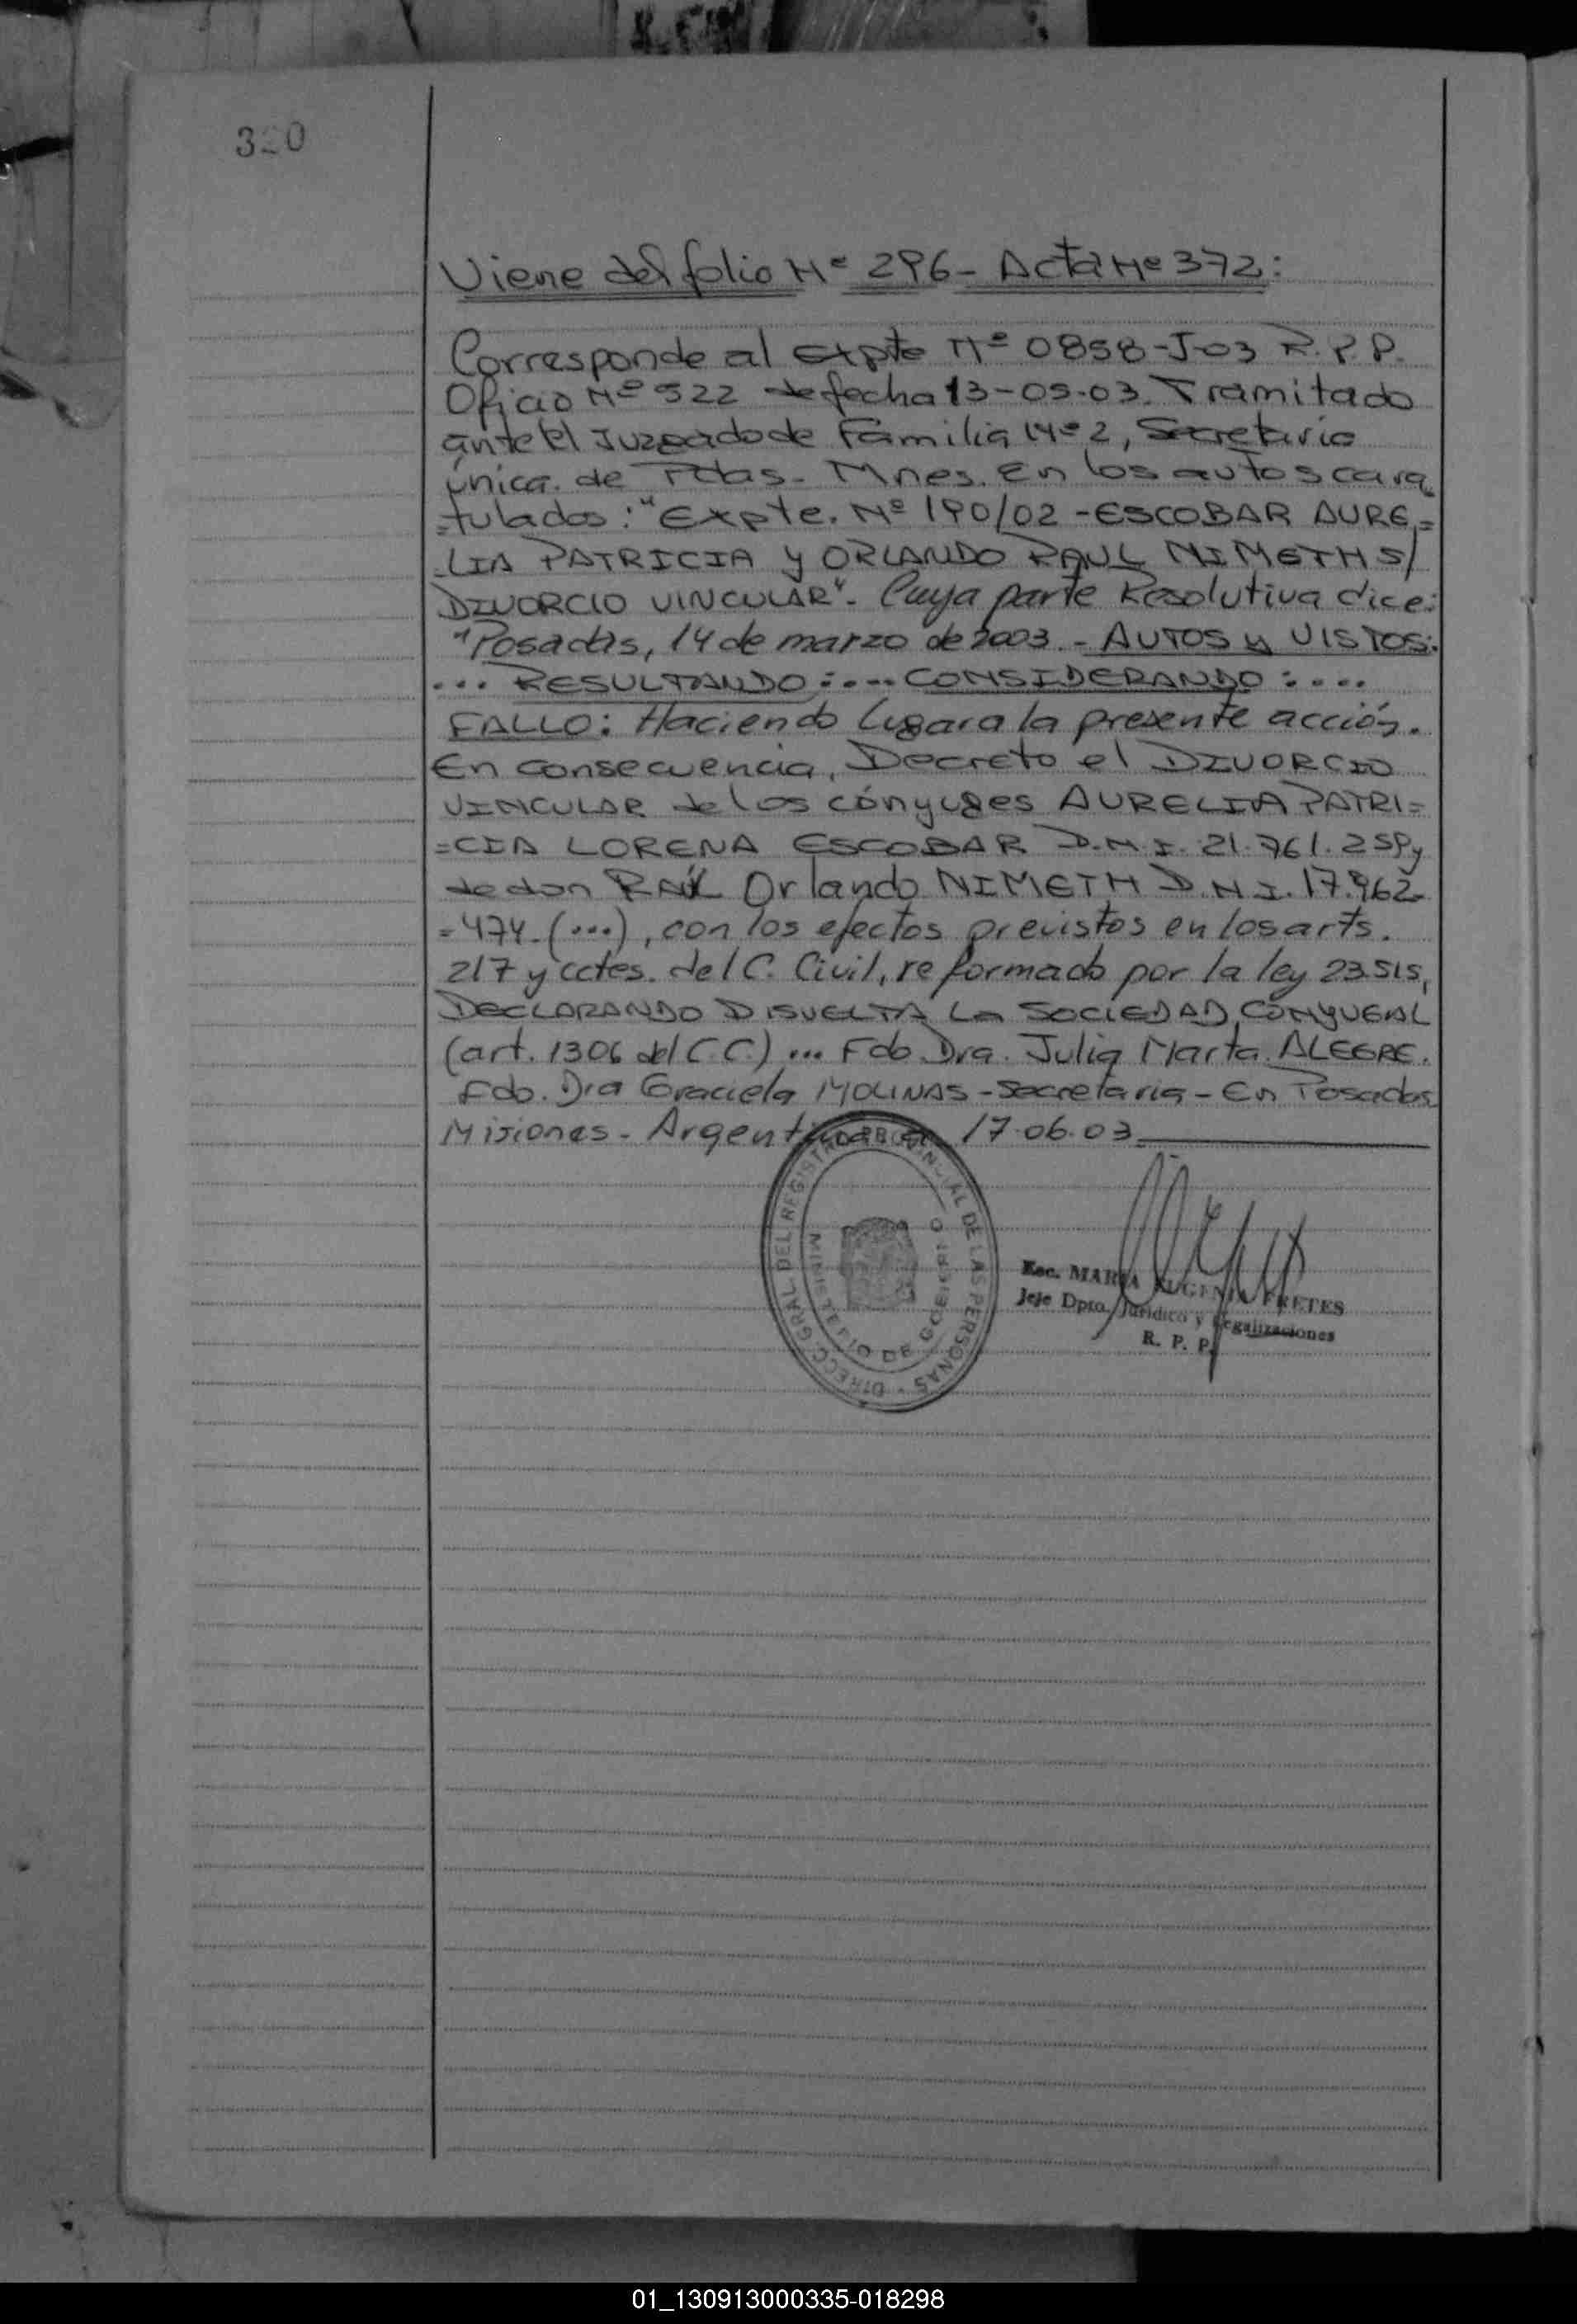 320
Viene del folio Nº 296 - Acta Nº 372:
Corresponde al Expte Nº 0858-J-03 R.P.P.
Oficio Nº 522 de fecha 13-05-03. Tramitado
ante el Juzgado de Familia Nº 2, Secretaria
única. de Pdas. Mnes. En los autos cara
=tulados: "Expte. Nº 190/02 - ESCOBAR AURE=
=LIA PATRICIA y ORLANDO RAUL NIMETH S/
DIVORCIO VINCULAR". Cuya parte Resolutiva dice:
"Posadas, 14 de marzo de 2003. - AUTOS y VISTOS:
... RESULTANDO: .... CONSIDERANDO: ....
FALLO: Haciendo lugar a la presente acción.
En consecuencia, Decreto el DIVORCIO
VINCULAR de los cónyuges AURELIA PATRI=
=CIA LORENA ESCOBAR D.N.I. 21.761.259 y
de don RAÚL Orlando NIMETH D.N.I. 17.962.
=474. (...), con los efectos previstos en los arts.
217 y cctes. del C. Civil, reformado por la ley 23.515,
DECLARANDO DISUELTA La SOCIEDAD CONYUGAL
(art. 1306 del C.C.) ... Fdo. Dra. Julia Marta ALEGRE.
Fdo. Dra Graciela MOLINAS - Secretaria - En Posadas
Misiones - Argentina a 17-06-03
DIRECC. GRAL. DEL REGISTRO PROVINCIAL DE LAS PERSONAS
MINISTERIO DE GOBIERNO
Esc. MARIA EUGENIA FRETES
Jefe Dpto. Jurídico y Legalizaciones
R. P. P.
01_130913000335-018298